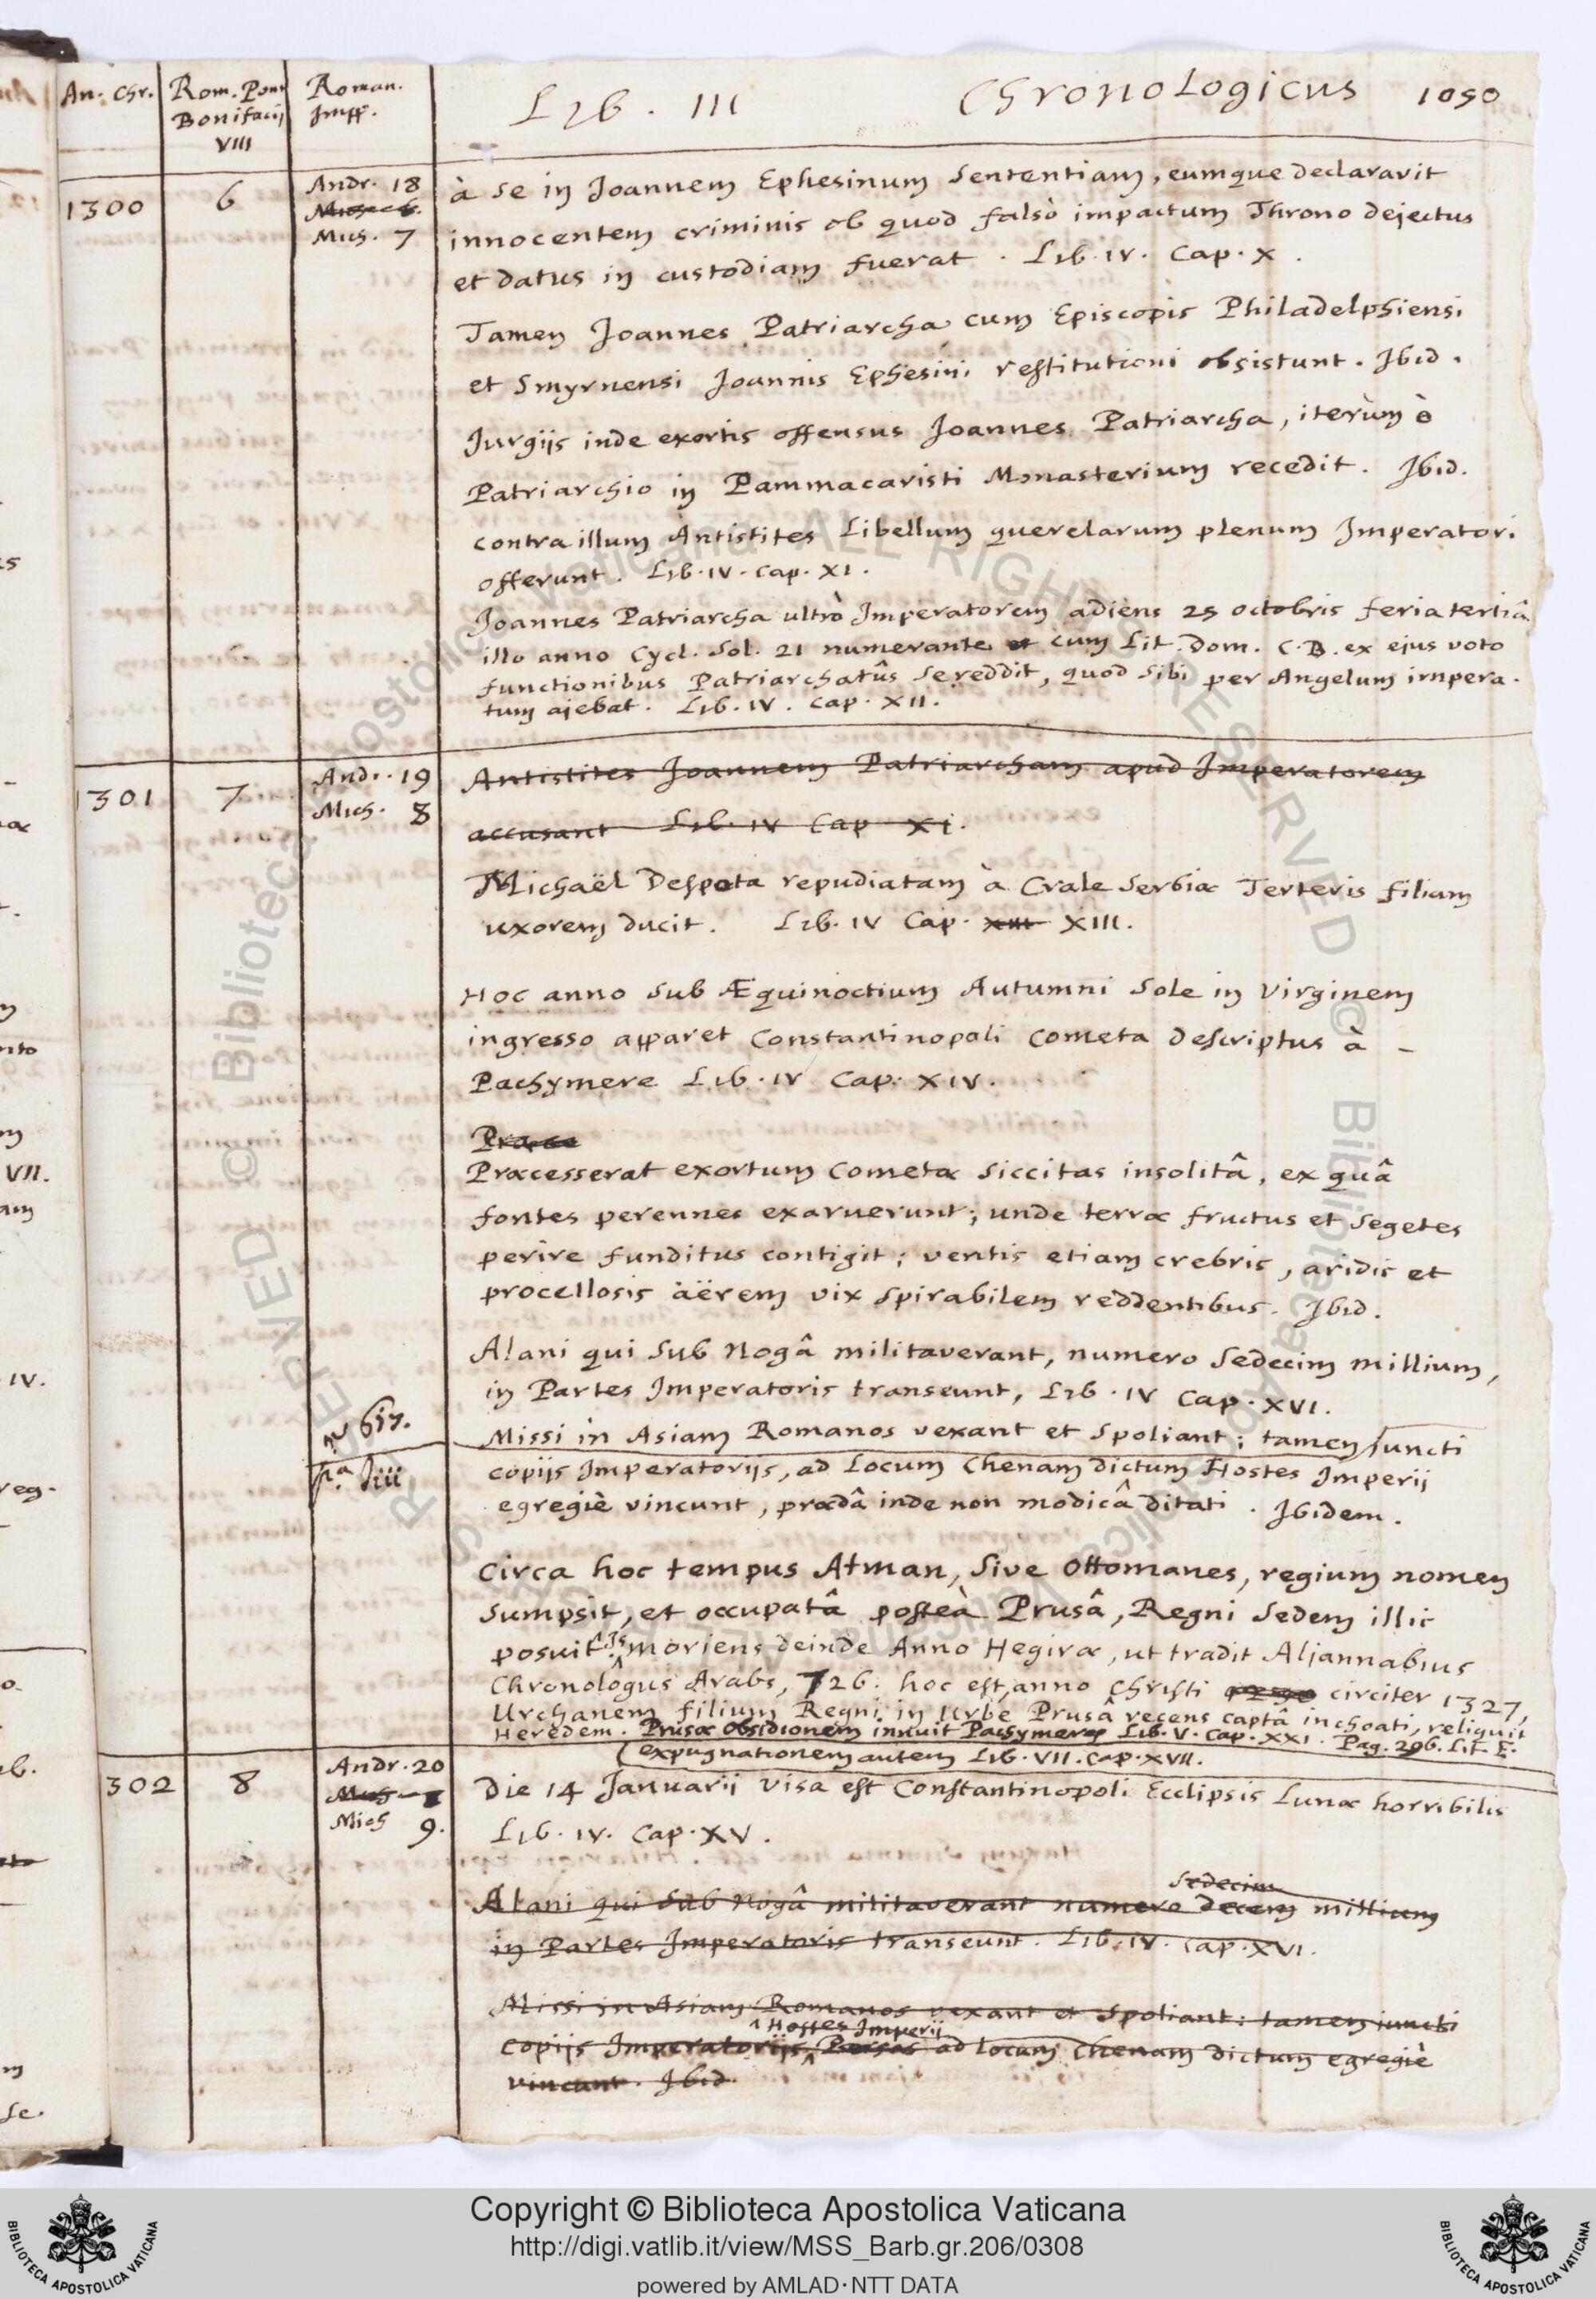 An. Chr. Rom. Pont. Bonifacij VIII Roman. Impp. Lib. III Chronologicus 1050
1300 6 Andr. 18
Mich. 6.
Mich. 7
à se in Joannem Ephesinum Sententiam, eumque declaravit
innocentem criminis ob quod falsò impactum Throno dejectus
et datus in custodiam fuerat. Lib. IV. Cap. X.
Tamen Joannes Patriarcha cum Episcopis Philadelphiensi
et Smyrnensi Joannis Ephesini restitutioni obsistunt. Ibid.
Jurgijs inde exortis offensus Joannes Patriarcha, iterùm è
Patriarchio in Pammacaristi Monasterium recedit. Ibid.
contra illum Antistites Libellum querelarum plenum Imperatori
offerunt. Lib. IV. Cap. XI.
Joannes Patriarcha ultrò Imperatorem adiens 25 octobris feria tertiâ
illo anno Cycl. Sol. 21 numerante et cum Lit. Dom. C.B. ex ejus voto
functionibus Patriarchatûs se reddit, quod sibi per Angelum impera-
tum ajebat. Lib. IV. Cap. XII.
1301 7 Andr. 19
Mich. 8
Antistites Joannem Patriarcham apud Imperatorem
accusant Lib. IV Cap XI.
Michaël Despota repudiatam à Crale Serbiæ Terteris filiam
uxorem ducit. Lib. IV Cap. XIII.
Hoc anno sub Æquinoctium Autumni Sole in Virginem
ingresso apparet Constantinopoli Cometa descriptus à -
Pachymere Lib. IV Cap. XIV.
Præce
Præcesserat exortum Cometæ siccitas insolitâ, ex quâ
fontes perennes exaruerunt; unde terræ fructus et segetes
perire funditus contigit; ventis etiam crebris, aridis et
procellosis äërem vix spirabilem reddentibus. Ibid.
Alani qui sub Nogâ militaverant, numero Sedecim millium,
in Partes Imperatoris transeunt, Lib. IV Cap. XVI.
Missi in Asiam Romanos vexant et spoliant; tamen juncti
copijs Imperatorijs, ad Locum Chenam dictum Hostes Imperij
egregiè vincunt, prædâ inde non modicâ ditati. Ibidem.
Circa hoc tempus Atman, Sive Ottomanes, regium nomen
sumpsit, et occupatâ posteà Prusâ, Regni Sedem illic
posuit. Is moriens deinde Anno Hegiræ, ut tradit Aljannabius
Chronologus Arabs, 726. hoc est, anno Christi circiter 1327,
Urchanem filium Regni in Urbe Prusâ recens captâ inchoati, reliquit
Heredem. Prusæ obsidionem innuit Pachymeres Lib. V. Cap. XXI. Pag. 296. Lit. E.
expugnationem autem Lib. VII. Cap. XVII.
302 8 Andr. 20
Mich
Mich 9.
Die 14 Januarii Visa est Constantinopoli Ecclipsis Lunæ horribilis
Lib. IV. Cap. XV.
Sedecim
Alani qui sub Nogâ militaverant numero decem millium
in Partes Imperatoris transeunt. Lib. IV. Cap. XVI.
Missi in Asiam Romanos vexant et spoliant: tamen juncti
Hostes Imperij
copijs Imperatorijs, Persas ad locum Chenam dictum egregiè
vincunt. Ibid.
© Biblioteca Apostolica Vaticana ALL RIGHTS RESERVED
Copyright © Biblioteca Apostolica Vaticana
http://digi.vatlib.it/view/MSS_Barb.gr.206/0308
powered by AMLAD·NTT DATA
BIBLIOTECA APOSTOLICA VATICANA
BIBLIOTECA APOSTOLICA VATICANA